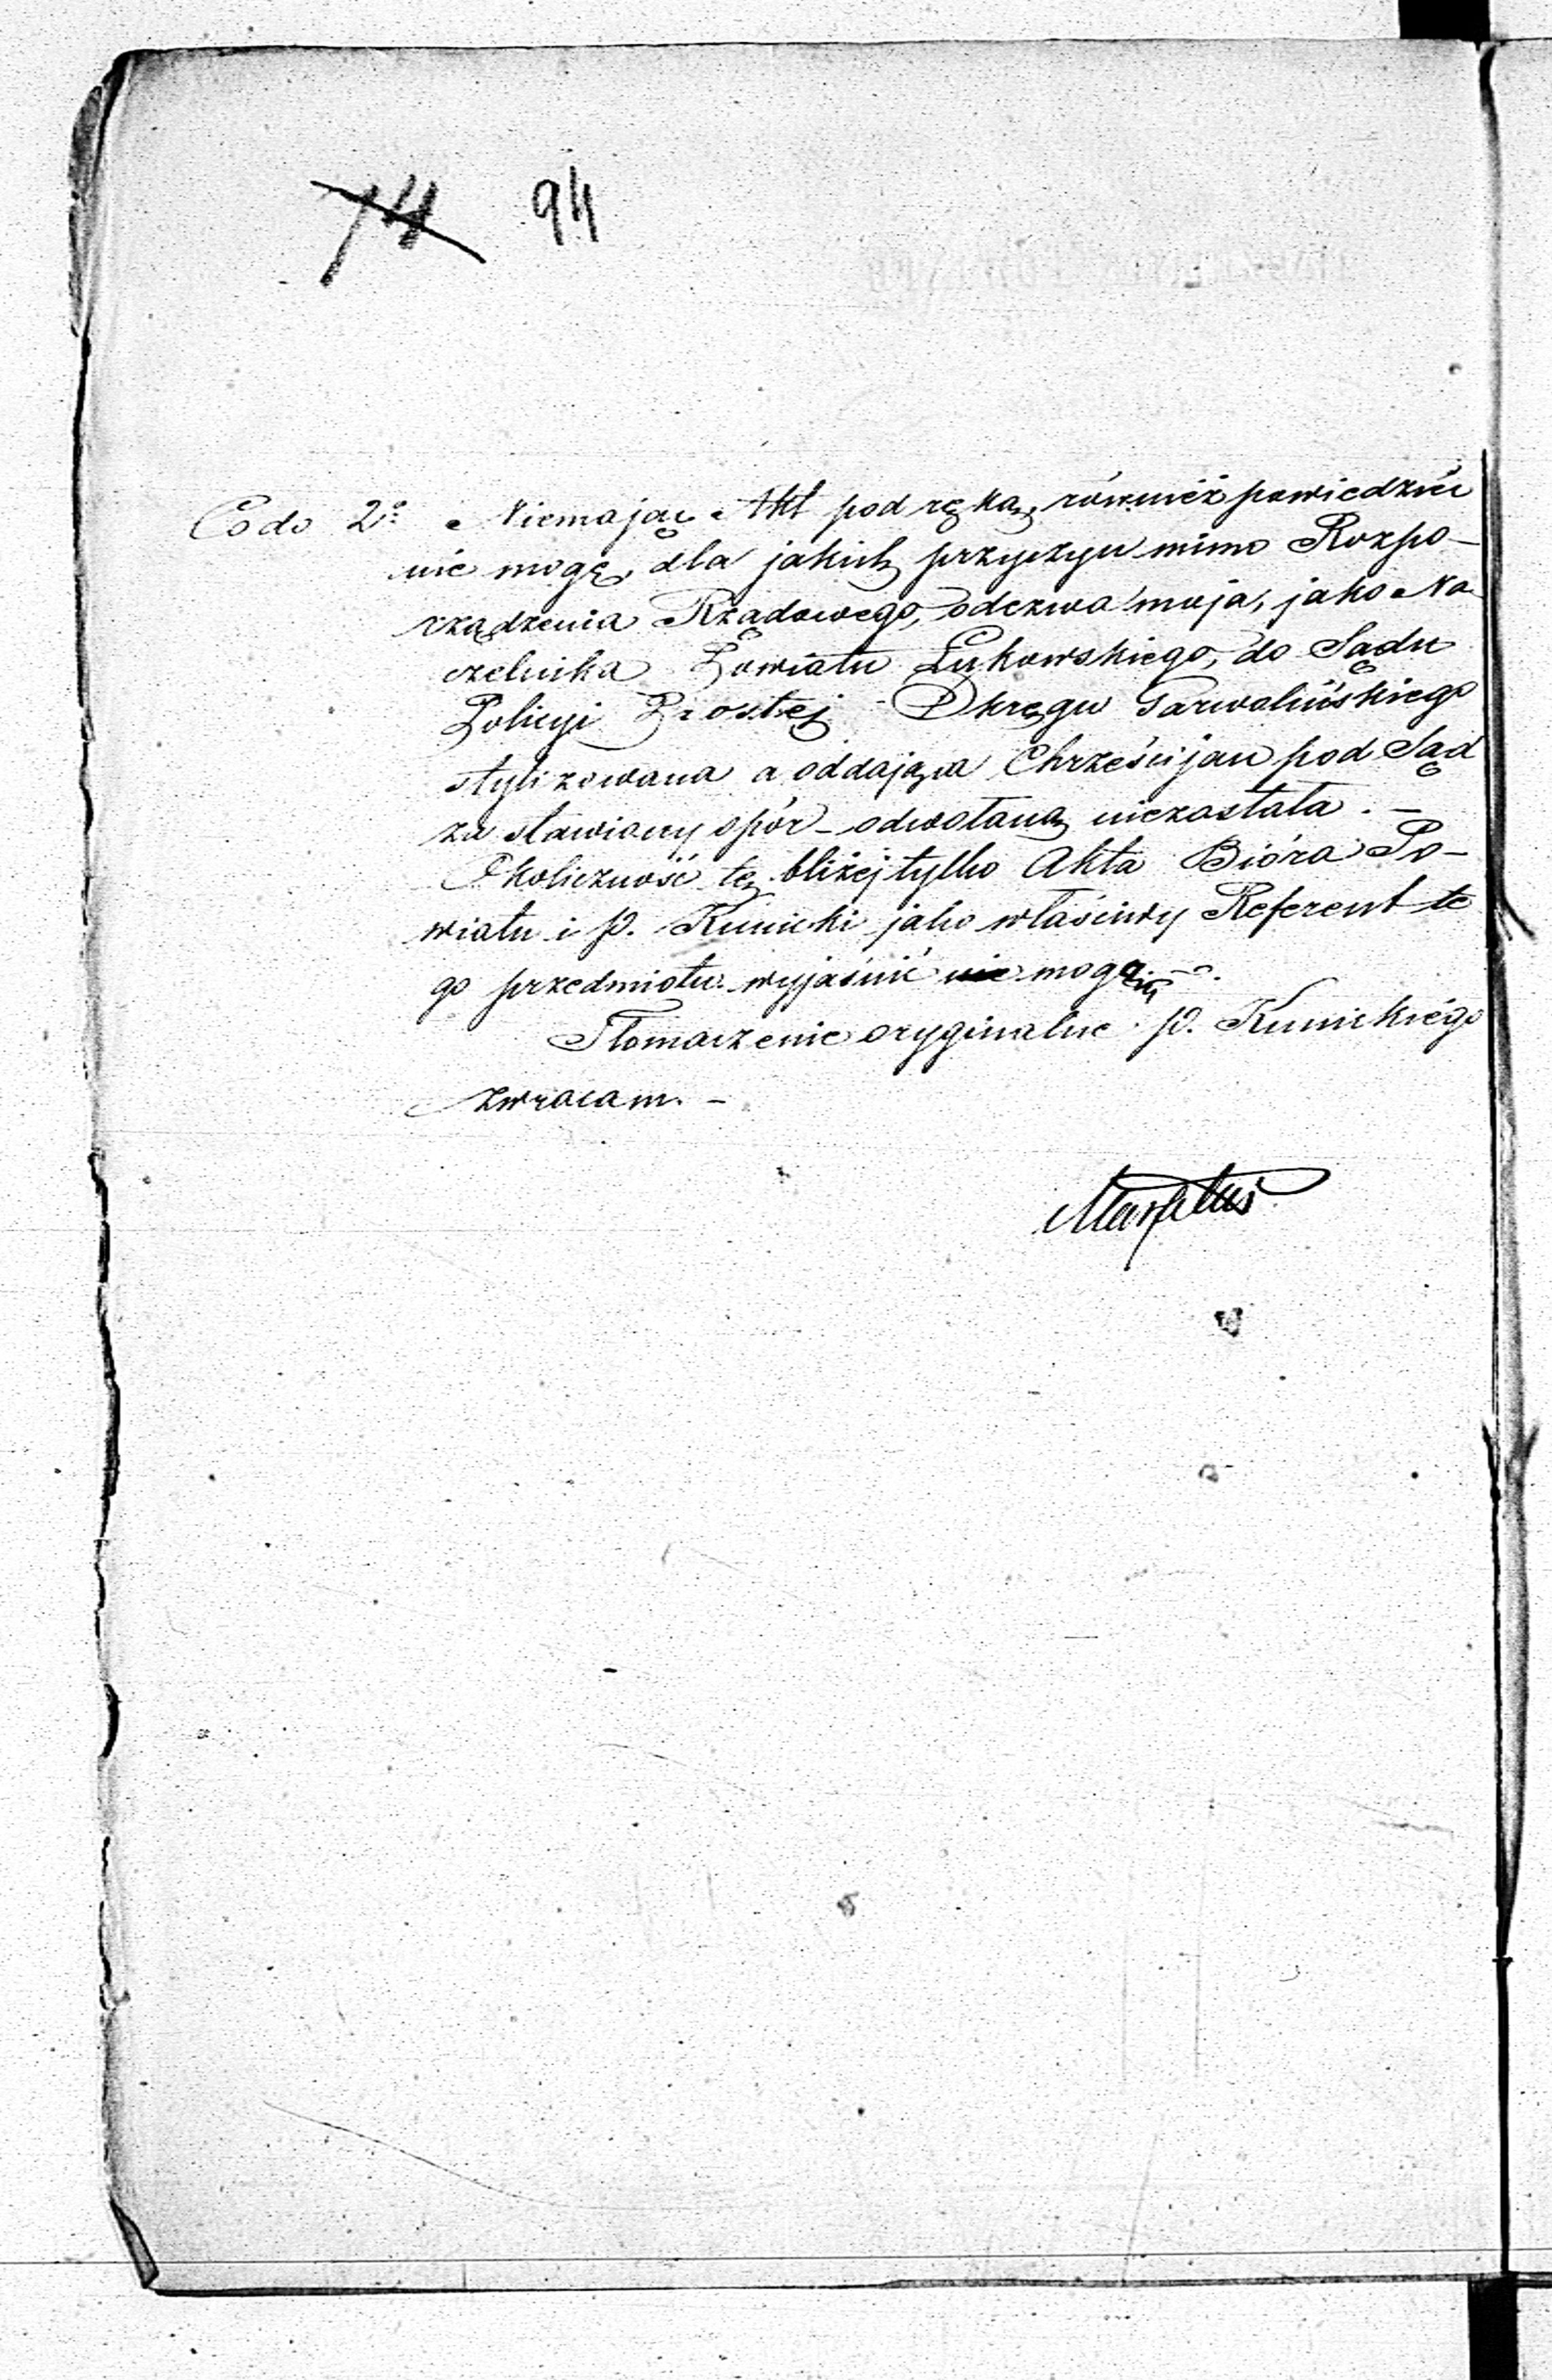 74 94
Co do 2º Niemając Akt pod ręką, również powiedzieć
nie mogę, dla jakich przyczyn mimo Rozpo-
rządzenia Rządowego, odezwa moja, jako Na
czelnika Powiatu Łukowskiego, do Sądu
Policyi Prostej Okręgu Garwolińskiego
stylizowana a oddająca Chrześcijan pod Sąd
za stawiany opór - odwołaną niezostała. -
Okoliczność tę bliżej tylko Akta Bióra Po-
wiatu i p. Kunicki jako właściwy Referent te
go przedmiotu wyjaśnić nie mogą. -
Tłomaczenie oryginalne p. Kunickiégo
zwracam. -